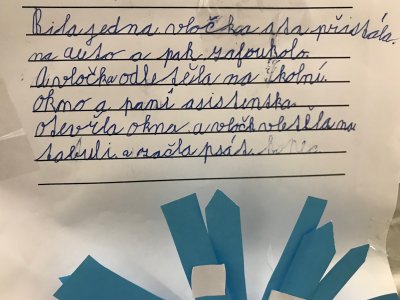 Bila jedna vločka a ta přistála
na auto a pak zafoukalo
A vločka odletěla na školní
okno a paní asistentka
otevřla okna a vločk vletěla na
tabuli a začla psát konec